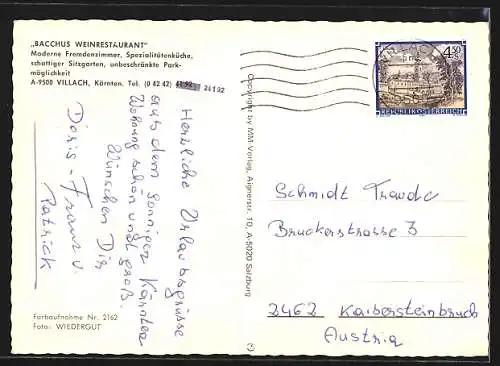 „BACCHUS WEINRESTAURANT"
Moderne Fremdenzimmer, Spezialitätenküche,
schattiger Sitzgarten, unbeschränkte Park-
möglichkeit
A-9500 VILLACH, Kärnten. Tel. (0 42 42) 24192
Herzliche Urlaubsgrüsse
aus dem sonnigen Kärnten
Wohnung schön und groß.
Wünschen Dir
Doris - Franz u.
Patrick
Farbaufnahme Nr. 2162
Foto: WIEDERGUT
Copyright by MM-Verlag, Aignerstr. 10, A-5020 Salzburg
3
4.50
S
REPUBLIK ÖSTERREICH
Schmidt Traude
Bruckerstrasse 3
2462 Kaisersteinbruch
Austria